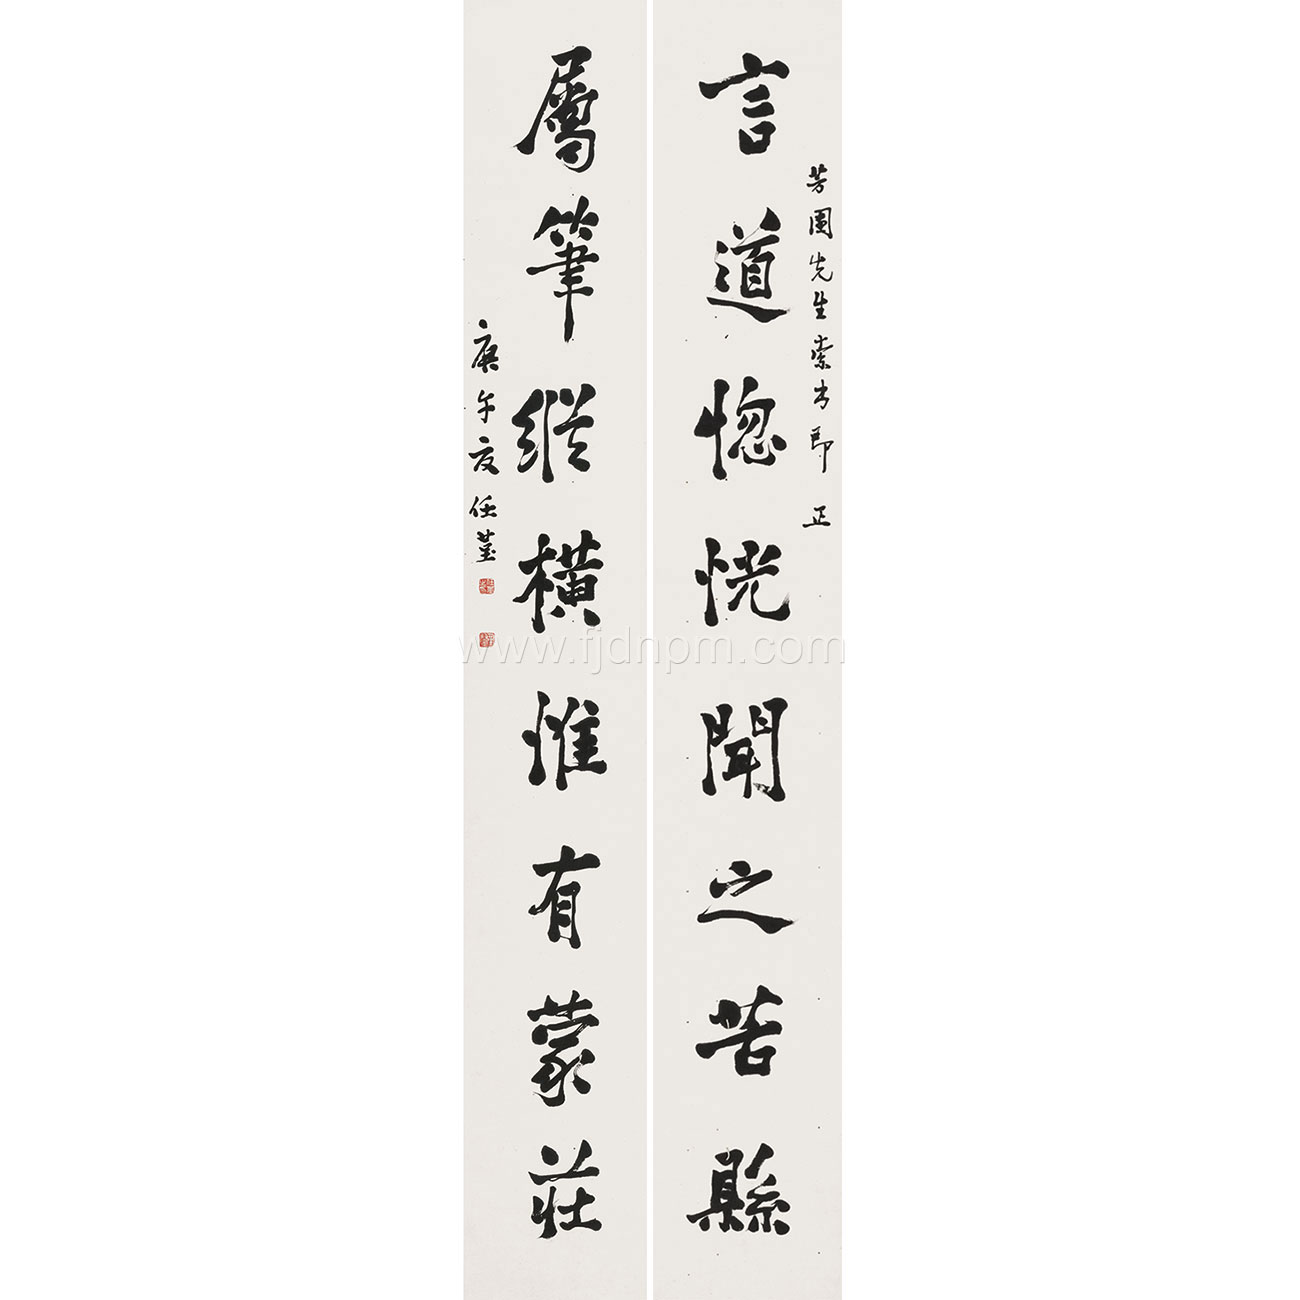 言道惚恍聞之苦縣
芳園先生索書即 正
屬筆縱橫惟有蒙莊
庚午夏任堇
www.fjdnpm.com